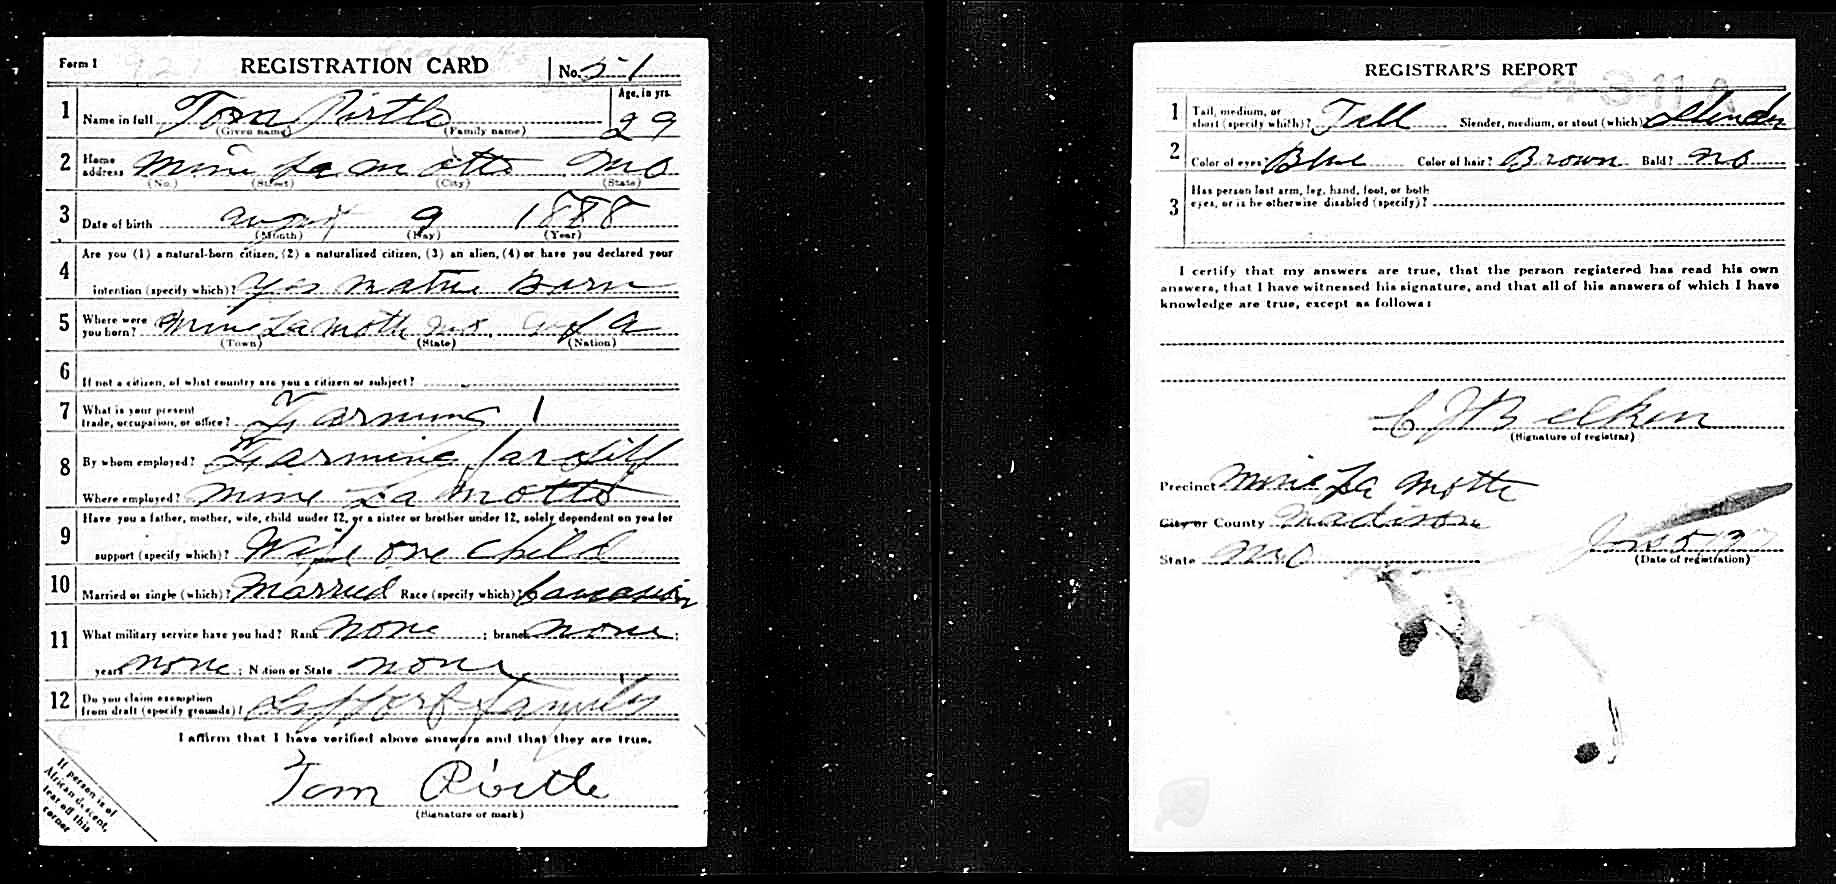 Form 1 REGISTRATION CARD No. 51
1 Name in full Tom Pirtle Age, in yrs. 29
(Given name) (Family name)
2 Home address Mine La Motte Mo
(No.) (Street) (City) (State)
3 Date of birth August 9 1888
(Month) (Day) (Year)
4 Are you (1) a natural-born citizen, (2) a naturalized citizen, (3) an alien, (4) or have you declared your
intention (specify which)? Yes Native Born
5 Where were you born? Mine La Moth Mo, of A
(Town) (State) (Nation)
6 If not a citizen, of what country are you a citizen or subject?
7 What is your present trade, occupation, or office? Farming 1
8 By whom employed? Farming for
Where employed? Mine La Motte
9 Have you a father, mother, wife, child under 12, or a sister or brother under 12, solely dependent on you for
support (specify which)? Wife one child
10 Married or single (which)? Married Race (specify which)? Caucasian
11 What military service have you had? Rank none ; branch none ;
years none ; Nation or State none
12 Do you claim exemption from draft (specify grounds)? Support family
I affirm that I have verified above answers and that they are true.
Tom Pirtle
(Signature or mark)
If person is of
African descent,
tear off this
corner
REGISTRAR'S REPORT
1 Tall, medium, or short (specify which)? Tall Slender, medium, or stout (which)? Slender
2 Color of eyes? Blue Color of hair? Brown Bald? No
3 Has person lost arm, leg, hand, foot, or both
eyes, or is he otherwise disabled (specify)?
I certify that my answers are true, that the person registered has read his own
answers, that I have witnessed his signature, and that all of his answers of which I have
knowledge are true, except as follows:
C J Belken
(Signature of registrar)
Precinct Mine La Motte
City or County Madison
State Mo
(Date of registration)